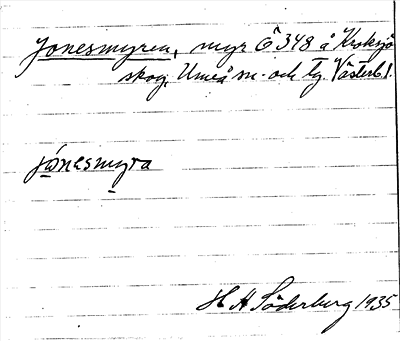 Jonesmyren, myr Ö 348 å Kroksjö
skog, Umeå sn. och tg. Västerb l.
jónesmyra
H A Söderberg 1935